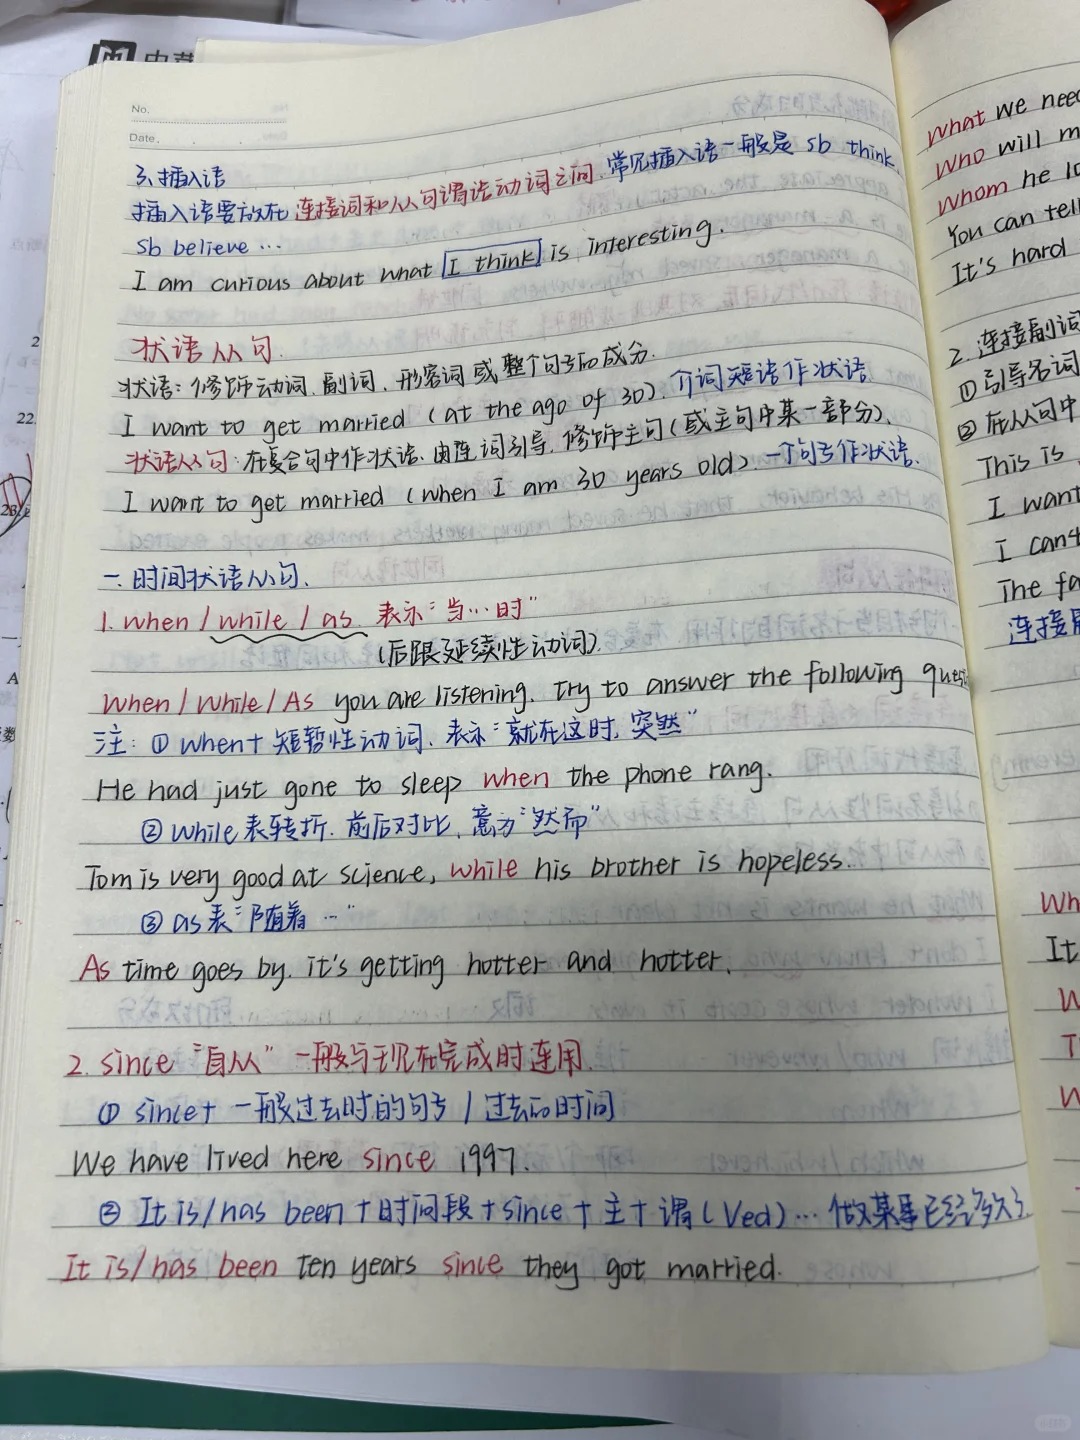 No.
Date.
3、插入语
插入语要放在连接词和从句谓语动词之间. 常见插入语一般是 sb think,
sb believe …
I am curious about what I think is interesting.
状语从句.
状语：修饰动词、副词、形容词或整个句子的成分.
I want to get married (at the ago of 30). 介词短语作状语
状语从句：在复合句中作状语、由连词引导、修饰主句(或主句中某一部分).
I want to get married (when I am 30 years old). 一个句子作状语.
一. 时间状语从句.
1. when / while / as 表示“当…时”
(后跟延续性动词).
When / While / As you are listening, try to answer the following
注：① when + 短暂性动词、表示“就在这时, 突然”
He had just gone to sleep when the phone rang.
② while 表转折. 前后对比, 意为“然而”
Tom is very good at science, while his brother is hopeless.
③ as 表“随着…”
As time goes by, it's getting hotter and hotter.
2. since “自从” 一般与现在完成时连用.
① since + 一般过去时的句子 / 过去的时间
We have lived here since 1997.
② It is/has been + 时间段 + since + 主 + 谓(Ved) … 做某事已经多久了
It is/has been ten years since they got married.
What we need
Who will
Whom he
You can tell
It's hard
2. 连接副词
① 引导名词
② 在从句中
This is
I want
I can't
The
连接
It
22.